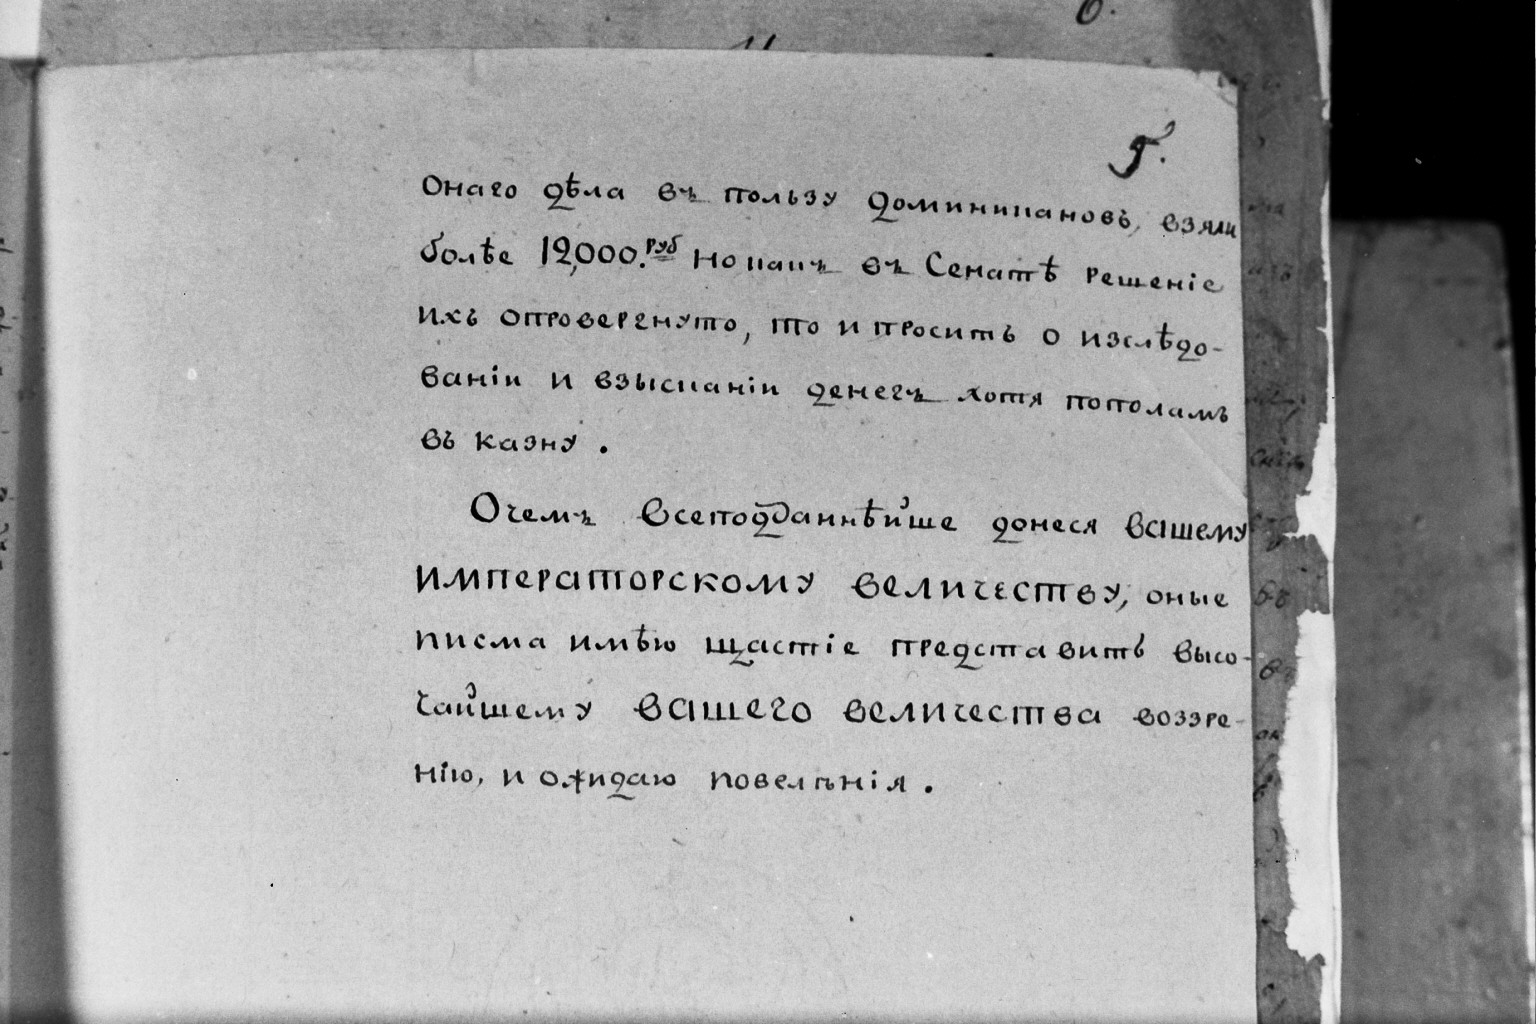 5.
онаго дѣла въ пользу доминикановъ, взяли
болѣе 12,000. руб но какъ въ Сенатѣ решенiе
ихъ опровергнуто, то и проситъ о изслѣдо-
ванiи и взысканiи денегъ хотя пополамъ
въ казну.
Очемъ всеподданнѣйше донеся вашему
императорскому величеству, оные
писма имѣю щастiе представить высо-
чайшему вашего величества воззре-
нiю, и ожидаю повелѣнiя.